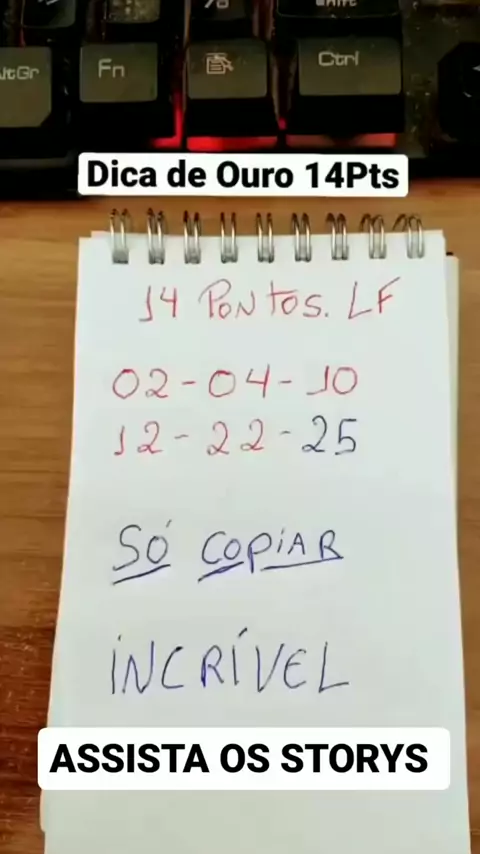 AltGr
Fn
Ctrl
Dica de Ouro 14Pts
14 PONTOS. LF
02-04-10
12-22-25
SÓ COPIAR
INCRÍVEL
ASSISTA OS STORYS